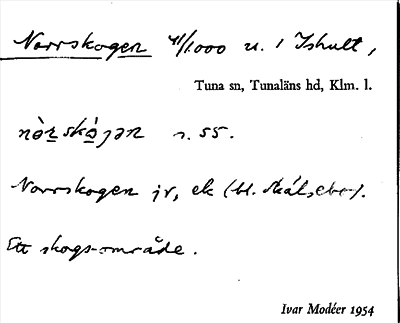 Norrskogen 41/1000 u. 1 Ishult,
Tuna sn, Tunaläns hd, Klm. l.
s. 55.
Norrskogen jr, ek (bl.
Ett skogsområde.
Ivar Modéer 1954